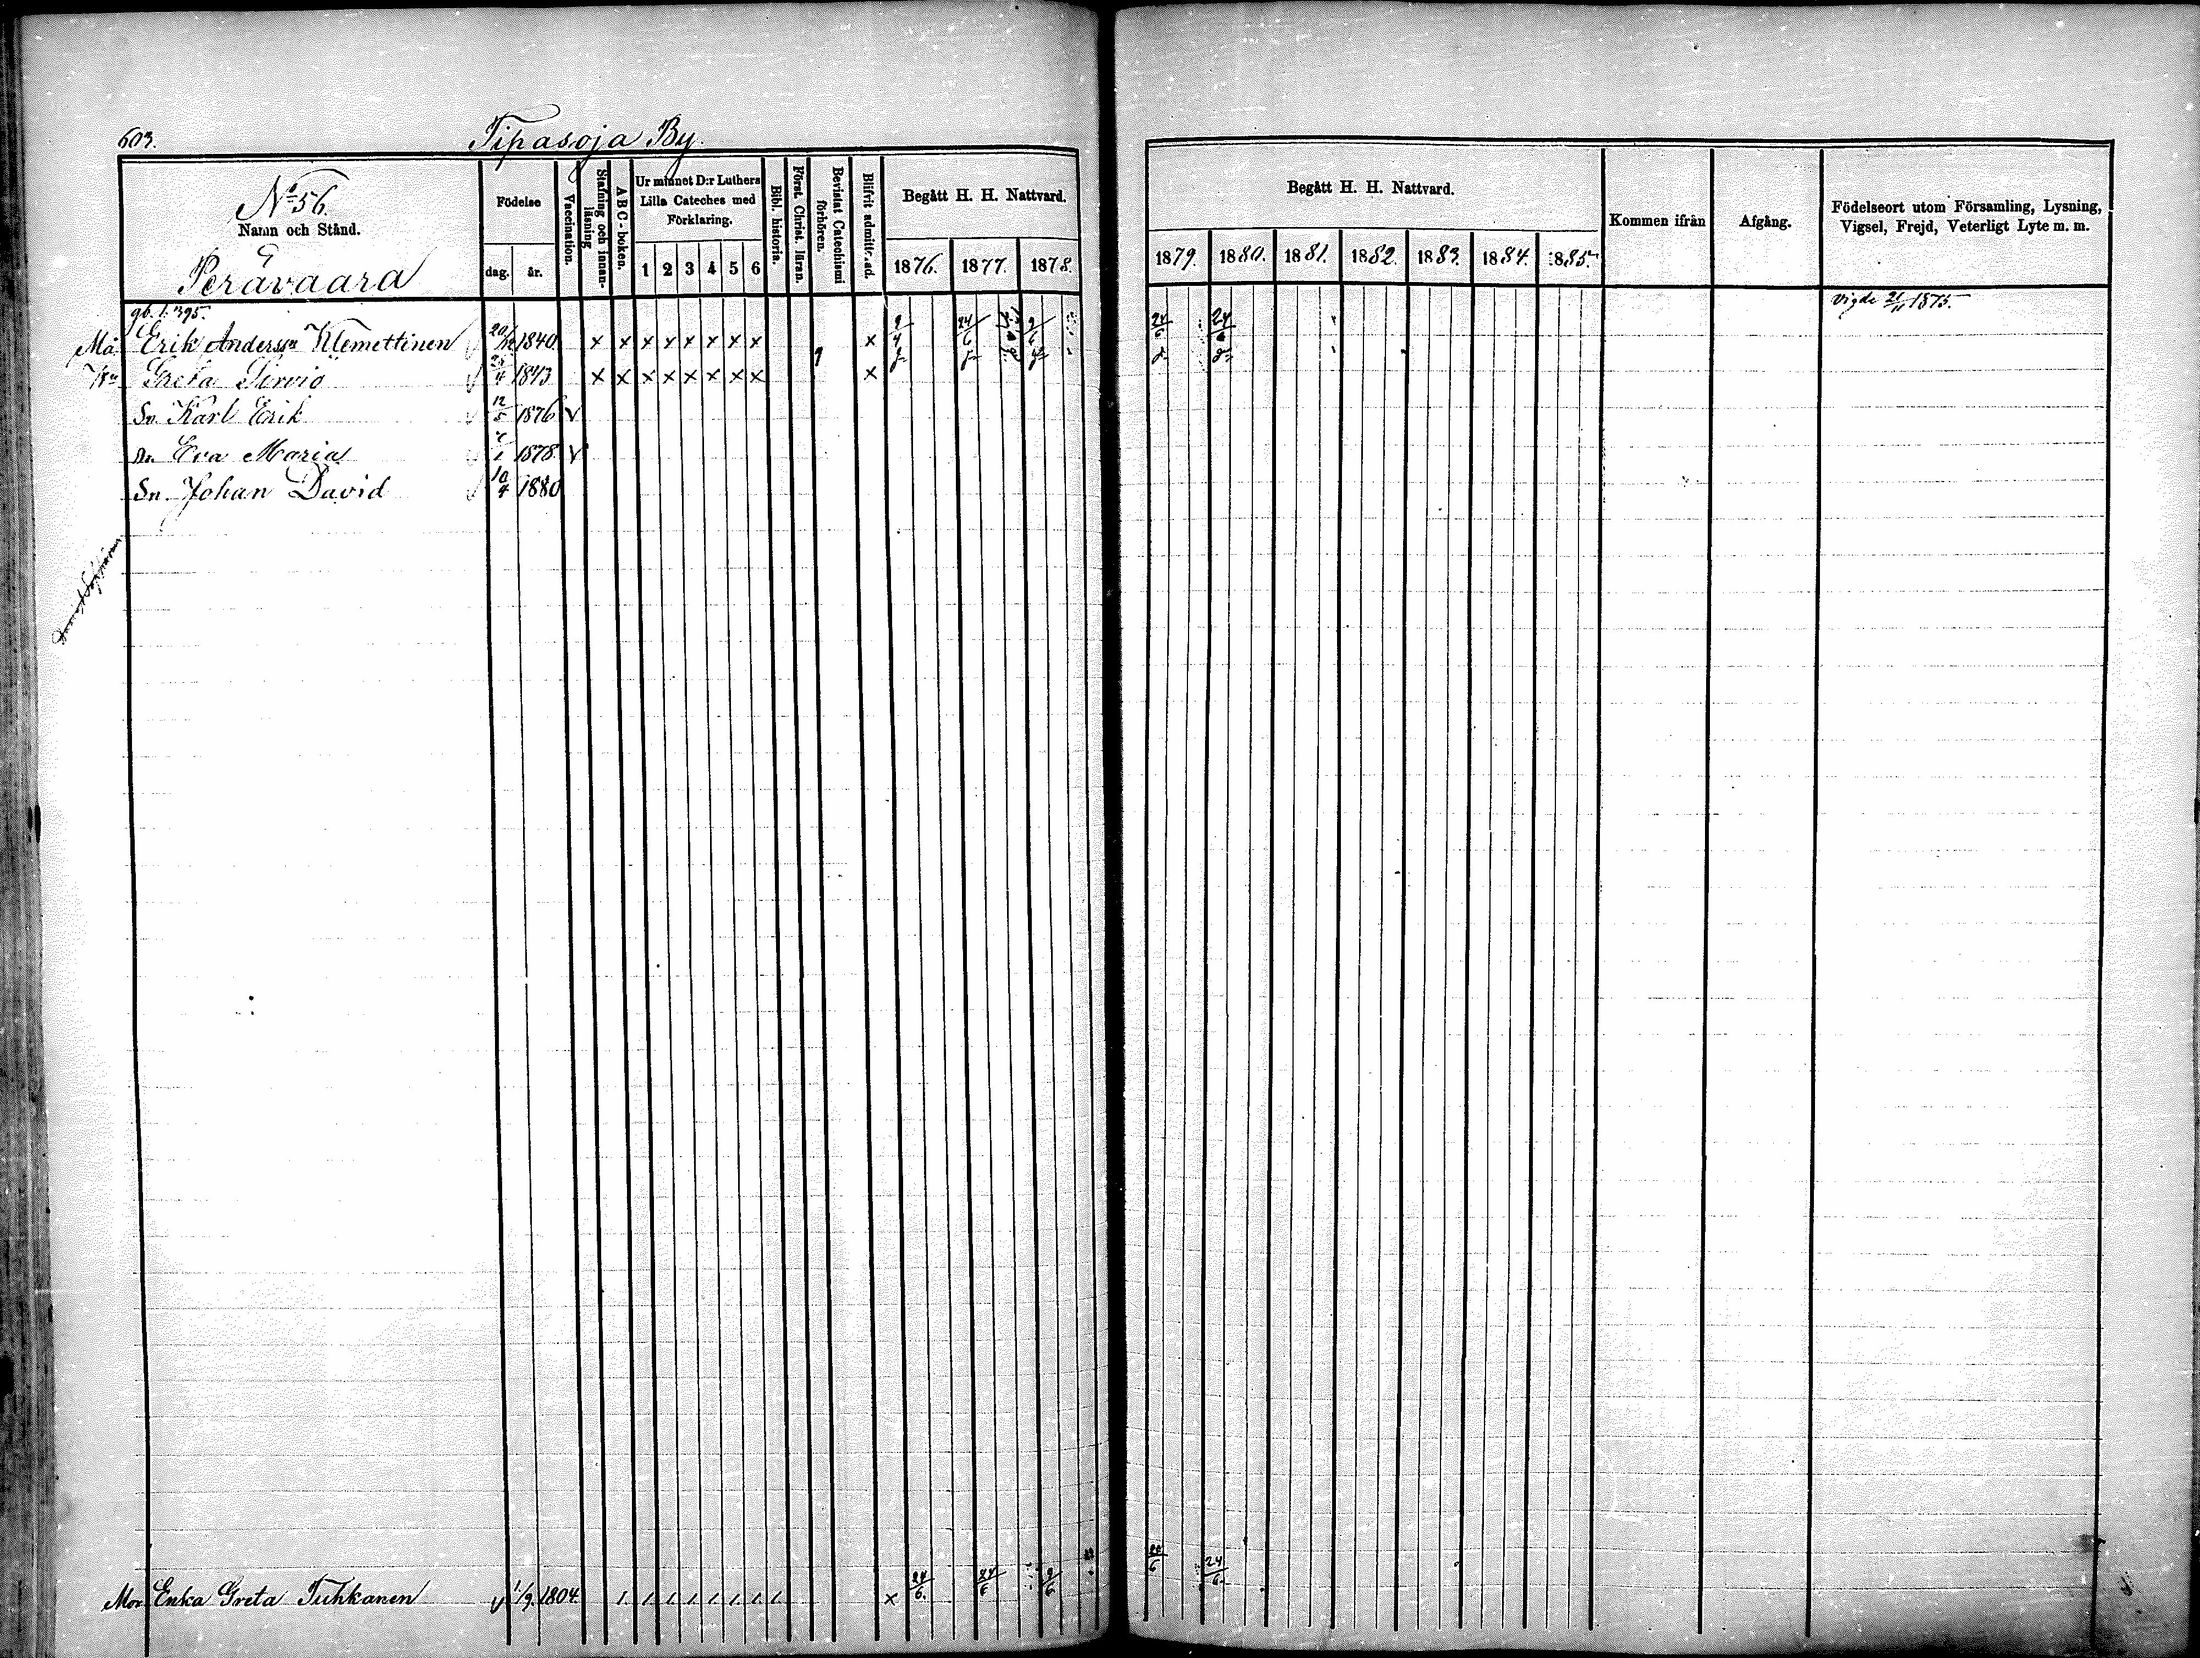 603.
Tipasoja By.
No 56.
Namn och Stånd.
Perävaara
Födelse
dag. år.
Vaccination.
Stafning och innan-läsning
ABC-boken.
Ur minnet D:r Luthers
Lilla Cateches med
Förklaring.
1 2 3 4 5 6
Bibl. historia.
Först. Christ. läran.
Bevistat Catechismi förhören.
Blifvit admittr. ad.
Begått H. H. Nattvard.
1876. 1877. 1878.
Begått H. H. Nattvard.
1879. 1880. 1881. 1882. 1883. 1884. 1885.
Kommen ifrån
Afgång.
Födelseort utom Församling, Lysning,
Vigsel, Frejd, Veterligt Lyte m. m.
gb. l. 395. vigde 21/11 1875.
Må Erik Andersson Klemettinen 1840 × × × × × × × × × 24/6 9/6 24/6 24/6
Greta Sirviö 25/4 1843 × × × × × × × × ×
Sn. Karl Erik 12/5 1876 v
Dr. Eva Maria 1878 v
Sn. Johan David 10/4 1880
Mor Enka Greta Tuhkanen v 1/9 1804 × 24/6 24/6 9/6 24/6